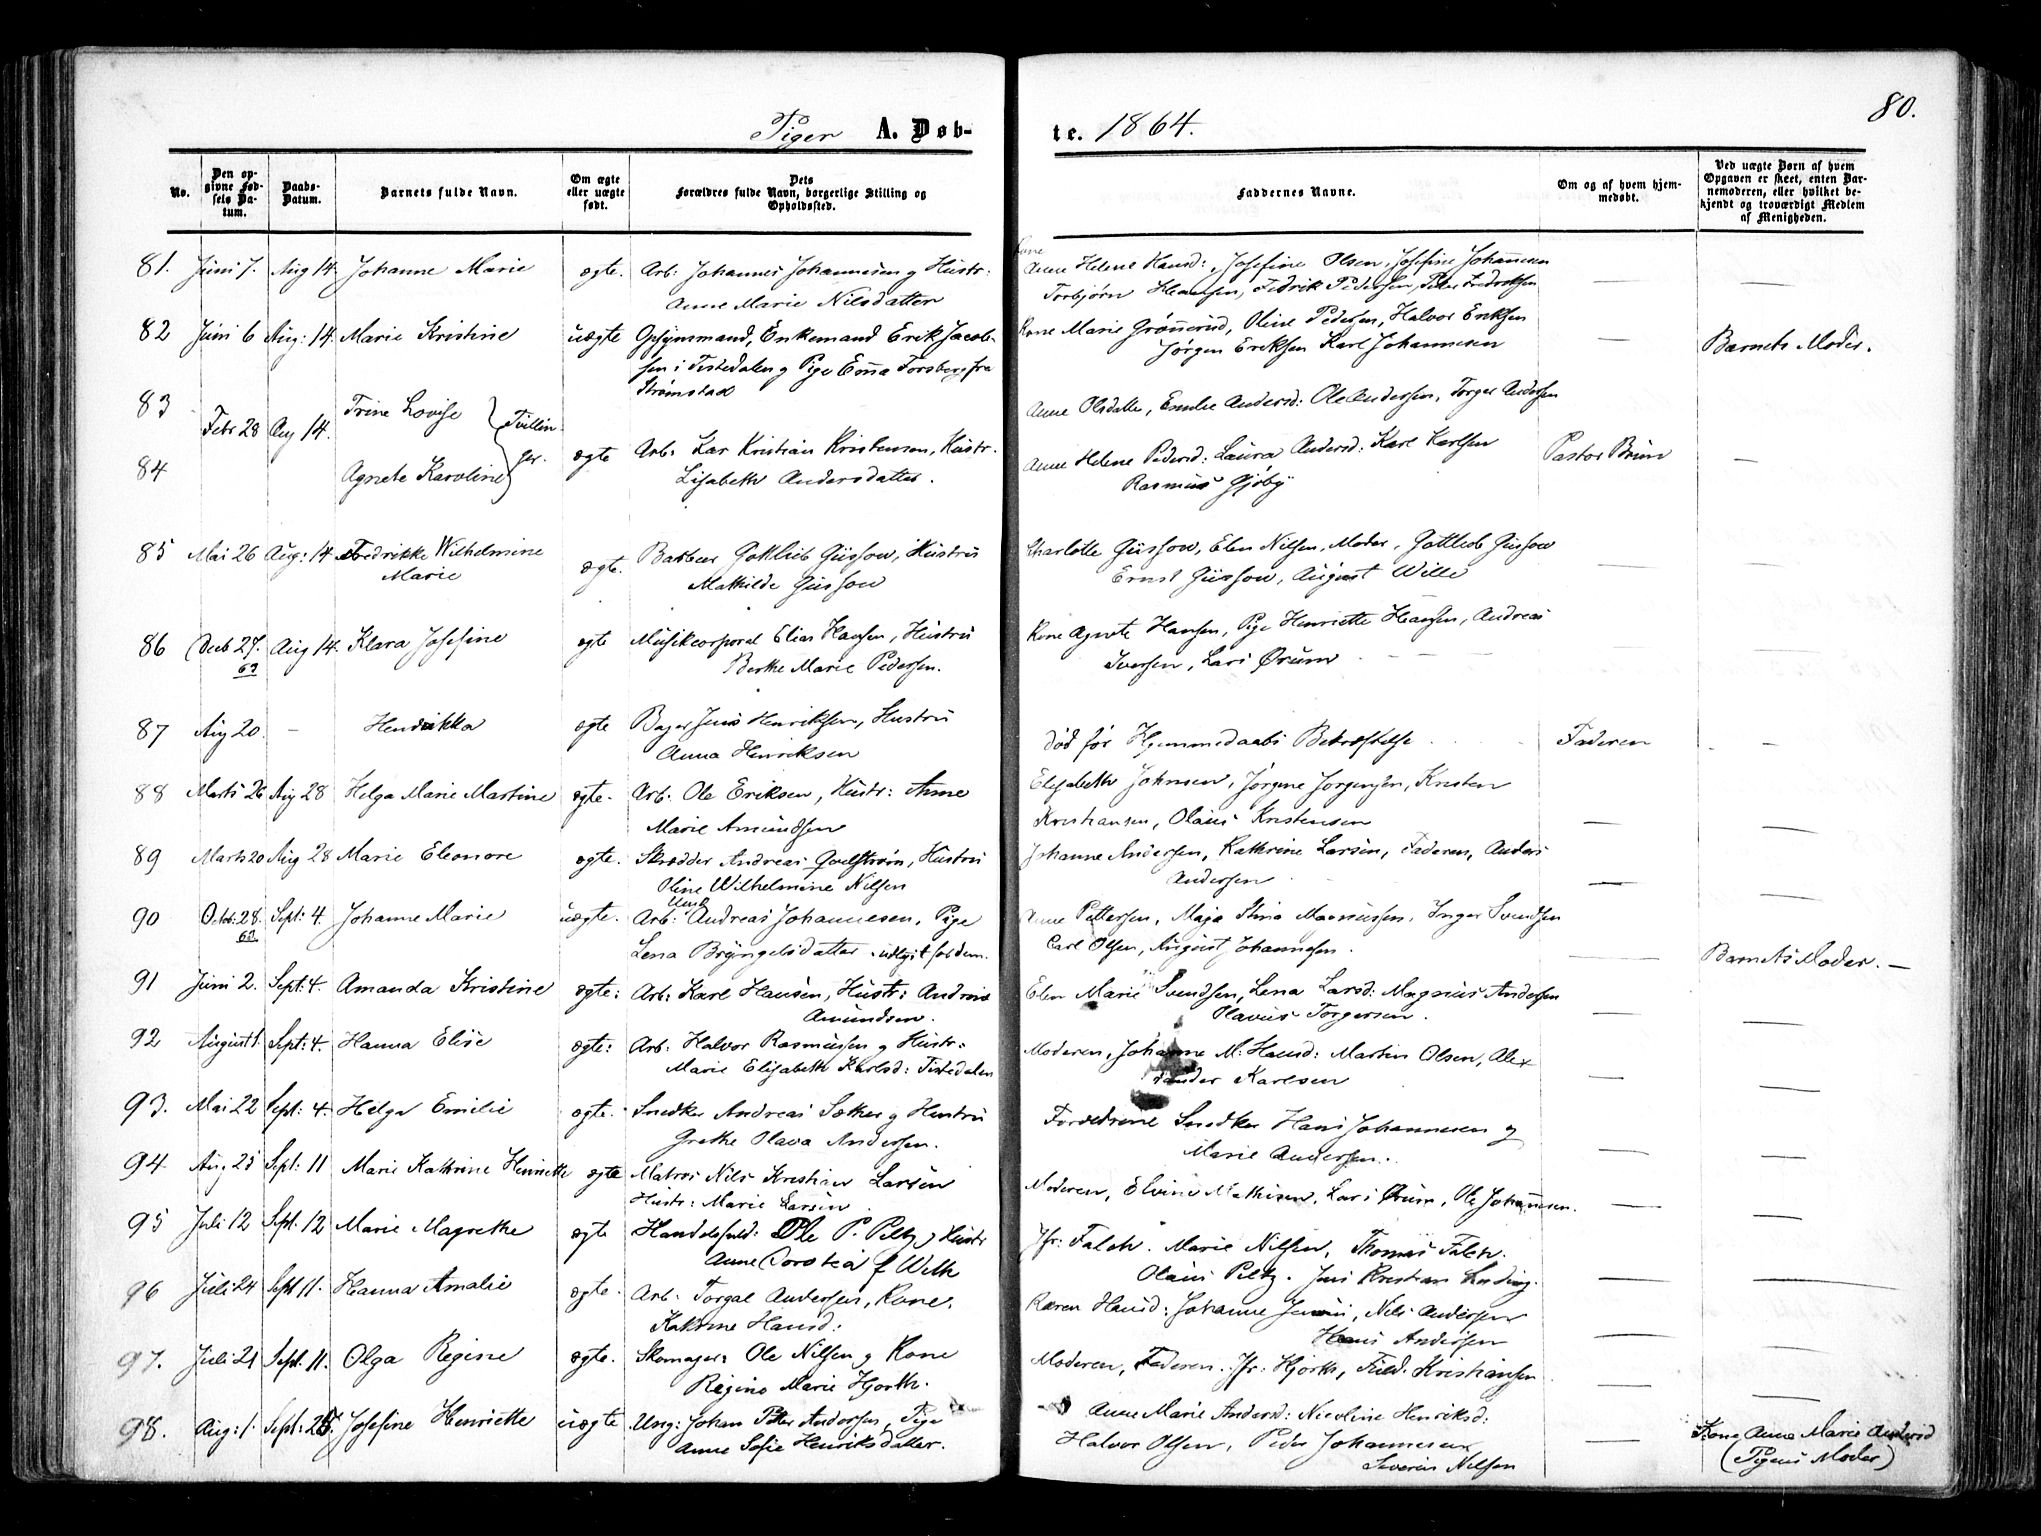 80.
Piger A. Døb-
te. 1864.
No.
Den op-
givne Fød-
sels Da-
tum.
Daabs-
Datum.
Barnets fulde Navn.
Om ægte
eller uægte
født.
Dets
Forældres fulde Navn, borgerlige Stilling og
Opholdssted.
Faddernes Navne.
Om og af hvem hjem-
medøbt.
Ved uægte Børn af hvem
Opgaven er skeet, enten Bar-
nemoderen, eller hvilket be-
kjendt og troværdigt Medlem
af Menigheden.
81. Juni 7. Aug 14. Johanne Marie ægte. Arb: Johannes Johannesen g Hustr:
Anne Marie Nilsdatter
Kone
Anne Helene Hansd:, Josefine Olsen, Josefine Johannesen
Torbjørn Hansen, Fedrik Pedersen, Peter Fredriksen
82 Juni 6 Aug: 14. Marie Kristine uægte Opsynsmand, Enkemand Erik Jacob-
sen i Tistedalen g Pige Emma Forsberg fra
Strømstad
Kone Marie Grønnerud, Oline Pedersen, Halvor Eriksen
Jørgen Eriksen Karl Johannesen
Barnets Moder.
83 Trine Lovise
Febr 28 Aug 14. Tvillin-
ger.
84 Agnete Karoline ægte Arb: Lar Kristian Kristensen, Hustr.
Lisabeth Andersdatter.
Anne Olsdatter, Emilie Andersd: Ole Andersen, Torger Andersen
Anne Helene Pedersd: Laura Andersd: Karl Karlsen
Rasmus Gjøby
Pastor Brun
85 Mai 26 Aug: 14 Fredrikke Wilhelmine
Marie
ægte. Barbeer Gottlieb Güssow, Hustru
Mathilde Güssow
Charlotte Güssow, Elen Nilsen, Moder, Gottlieb Güssow
Ernst Güssow, August Wille
86 Decb 27.
63
Aug 14. Klara Josefine ægte Musikcorporal Elias Hansen, Hustru
Berthe Marie Pedersen.
Kone Agnete Hansen, Pige Henriette Hansen, Andreas
Iversen, Lars Ørum
87 Aug 20. - Hendrikka ægte Bager Jens Henriksen, Hustru
Anna Henriksen
død før Hjemmedaabs Bekræftelse
Faderen
88 Marts 26 Aug 28 Helga Marie Martine ægte. Arb: Ole Eriksen, Hustr: Anne
Marie Amundsen
Elisabeth Johnsen, Jørgine Jørgensen, Kristen
Kristiansen, Olaus Kristensen
89 Marts 20 Aug 28 Marie Eleonore ægte. Skrædder Andreas Qvelstrøm, Hustru
Oline Wilhelmine Nilsen
Johanne Andersen, Kathrine Larsen, Faderen, Anders
Andersen
90 Octob: 28.
63.
Sept: 4. Johanne Marie uægte. Arb: Andreas Johannesen, Pige
Lena Bryngelsdatter
Anne Pettersen, Maja Stina Magnussen, Inger Svendsen
Carl Olsen, August Johannesen.
Barnets Moder. —
91 Juni 2. Sept: 4. Amanda Kristine ægte: Arb: Karl Hansen, Hustr: Andrine
Amundsen.
Elen Marie Svendsen, Lena Larsd: Magnus Andersen
Olavus Torgersen.
92 August 1. Sept: 4. Hanna Elise ægte: Arb: Halvor Rasmusen g Hustr:
Marie Elisabeth Karlsd: Tistedalen
Moderen, Johanne M: Hansd: Martin Olsen, Alex-
ander Karlsen
93. Mai 22 Sept: 4 Helga Emilie ægte. Snedker Andreas Sæther g Hustru
Grethe Olava Andersen.
Forældrene Snedker Hans Johannesen g
Marie Andersen.
94. Aug 25 Sept: 11 Marie Kathrine Henriette ægte Matros Nils Kristian Larsen
Hustr: Marie Larsen
Moderen, Elvine Mathisen, Lars Ørum, Ole Johannesen.
95 Juli 12 Sept. 12 Marie Magrethe ægte Handelsfuld: Ole P. Peltz g Hustr
Anne Dorothea f Weth
Jfr: Falch. Marie Nilsen, Thomas Falch.
Olaus Peltz. Jens Kristian
96 Juli 24 Sept 11. Hanna Amalie ægte. Arb: Torgal Andersen, Kone.
Kathrine Hansd:
Karen Hansd: Johanne Jensen, Nils Andersen
Hans Andersen
97. Juli 21 Sept. 11. Olga Regine ægte. Skomager: Ole Nilsen g Kone
Regine Marie Hjorth.
Moderen, Faderen. Jfr: Hjorth, Fuld. Kristiansen
98. Aug: 1. Sept: 25. Josefine Henriette uægte. Ung: Johan Peter Andersen, Pige
Anne Sofie Henriksdatter.
Anne Marie Andersd: Nicoline Henriksd:
Halvor Olsen, Peder Johannesen
Severin Nilsen
Kone Anne Marie Andersd
(Pigens Moder)